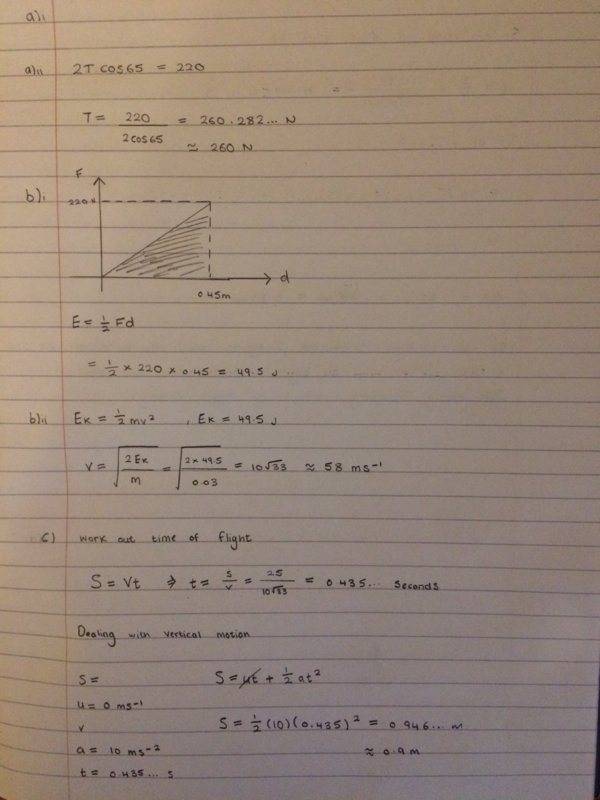 a)i
a)ii 2T cos65 = 220
T = 220 / 2cos65 = 260.282... N
≈ 260 N
F
b)i
220 N
d
0.45m
E = ½ Fd
= ½ × 220 × 0.45 = 49.5 J
b)ii Ek = ½ mv² , Ek = 49.5 J
V = √(2Ek / m) = √(2×49.5 / 0.03) = 10√33 ≈ 58 ms⁻¹
c) Work out time of flight
S = Vt ⇒ t = s/v = 25 / 10√33 = 0.435... seconds
Dealing with vertical motion
S = S = ut + ½ at²
u = 0 ms⁻¹
v S = ½ (10)(0.435)² = 0.946... m
a = 10 ms⁻² ≈ 0.9 m
t = 0.435... s